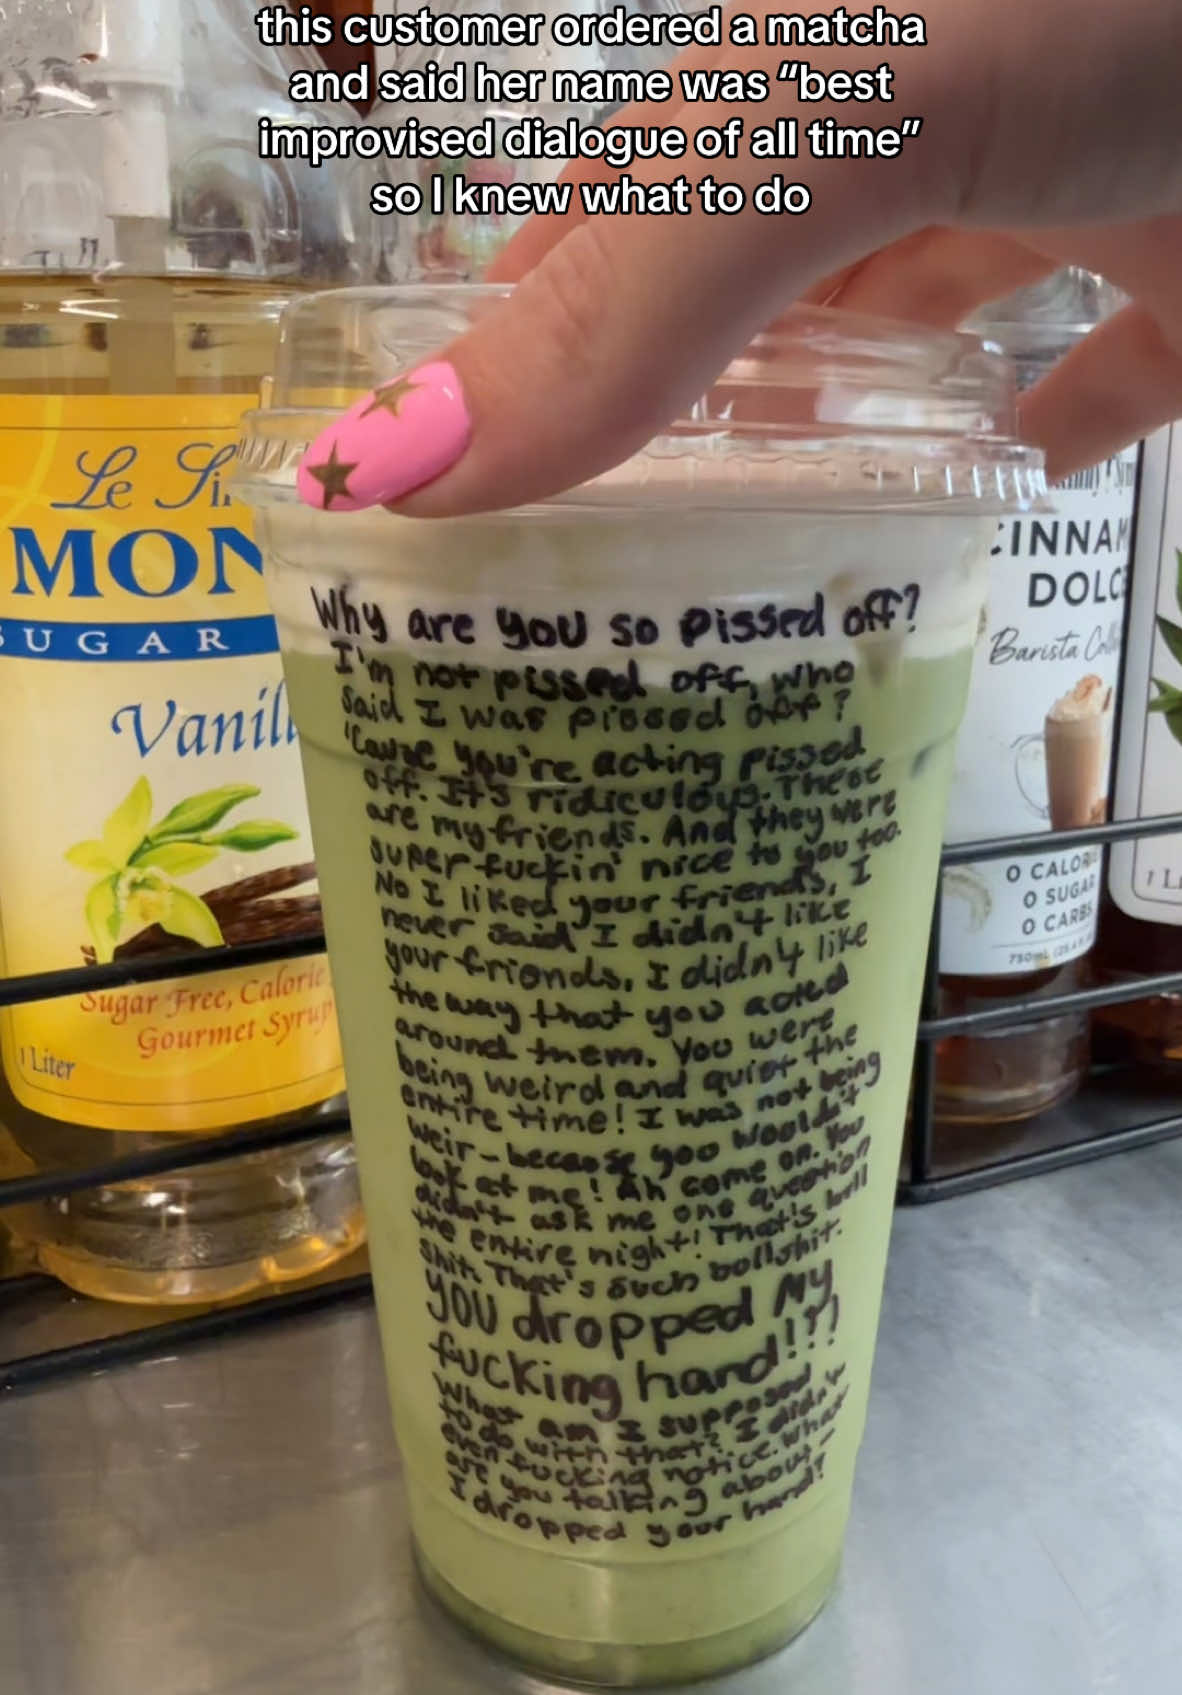 this customer ordered a matcha
and said her name was “best
improvised dialogue of all time”
so I knew what to do
Le Si
MON
SUGAR
Vanil
Sugar Free, Calorie
Gourmet Syrup
1 Liter
CINNAM
DOLCE
Barista Coll
0 CALOR
0 SUGAR
0 CARBS
750mL
1 L
Why are you so pissed off?
I'm not pissed off, who
said I was pissed off?
'Cause you're acting pissed
off. It's ridiculous. These
are my friends. And they were
super fuckin' nice to you too.
No I liked your friends, I
never said I didn't like
your friends, I didn't like
the way that you acted
around them. You were
being weird and quiet the
entire time! I was not being
weir- because you wouldn't
look at me! Ah come on. You
didn't ask me one question
the entire night! That's bull
shit. That's such bullshit.
YOU dropped MY
fucking hand!!?!
What am I supposed
to do with that? I didn't
even fucking notice. What
are you talking about-
I dropped your hand?